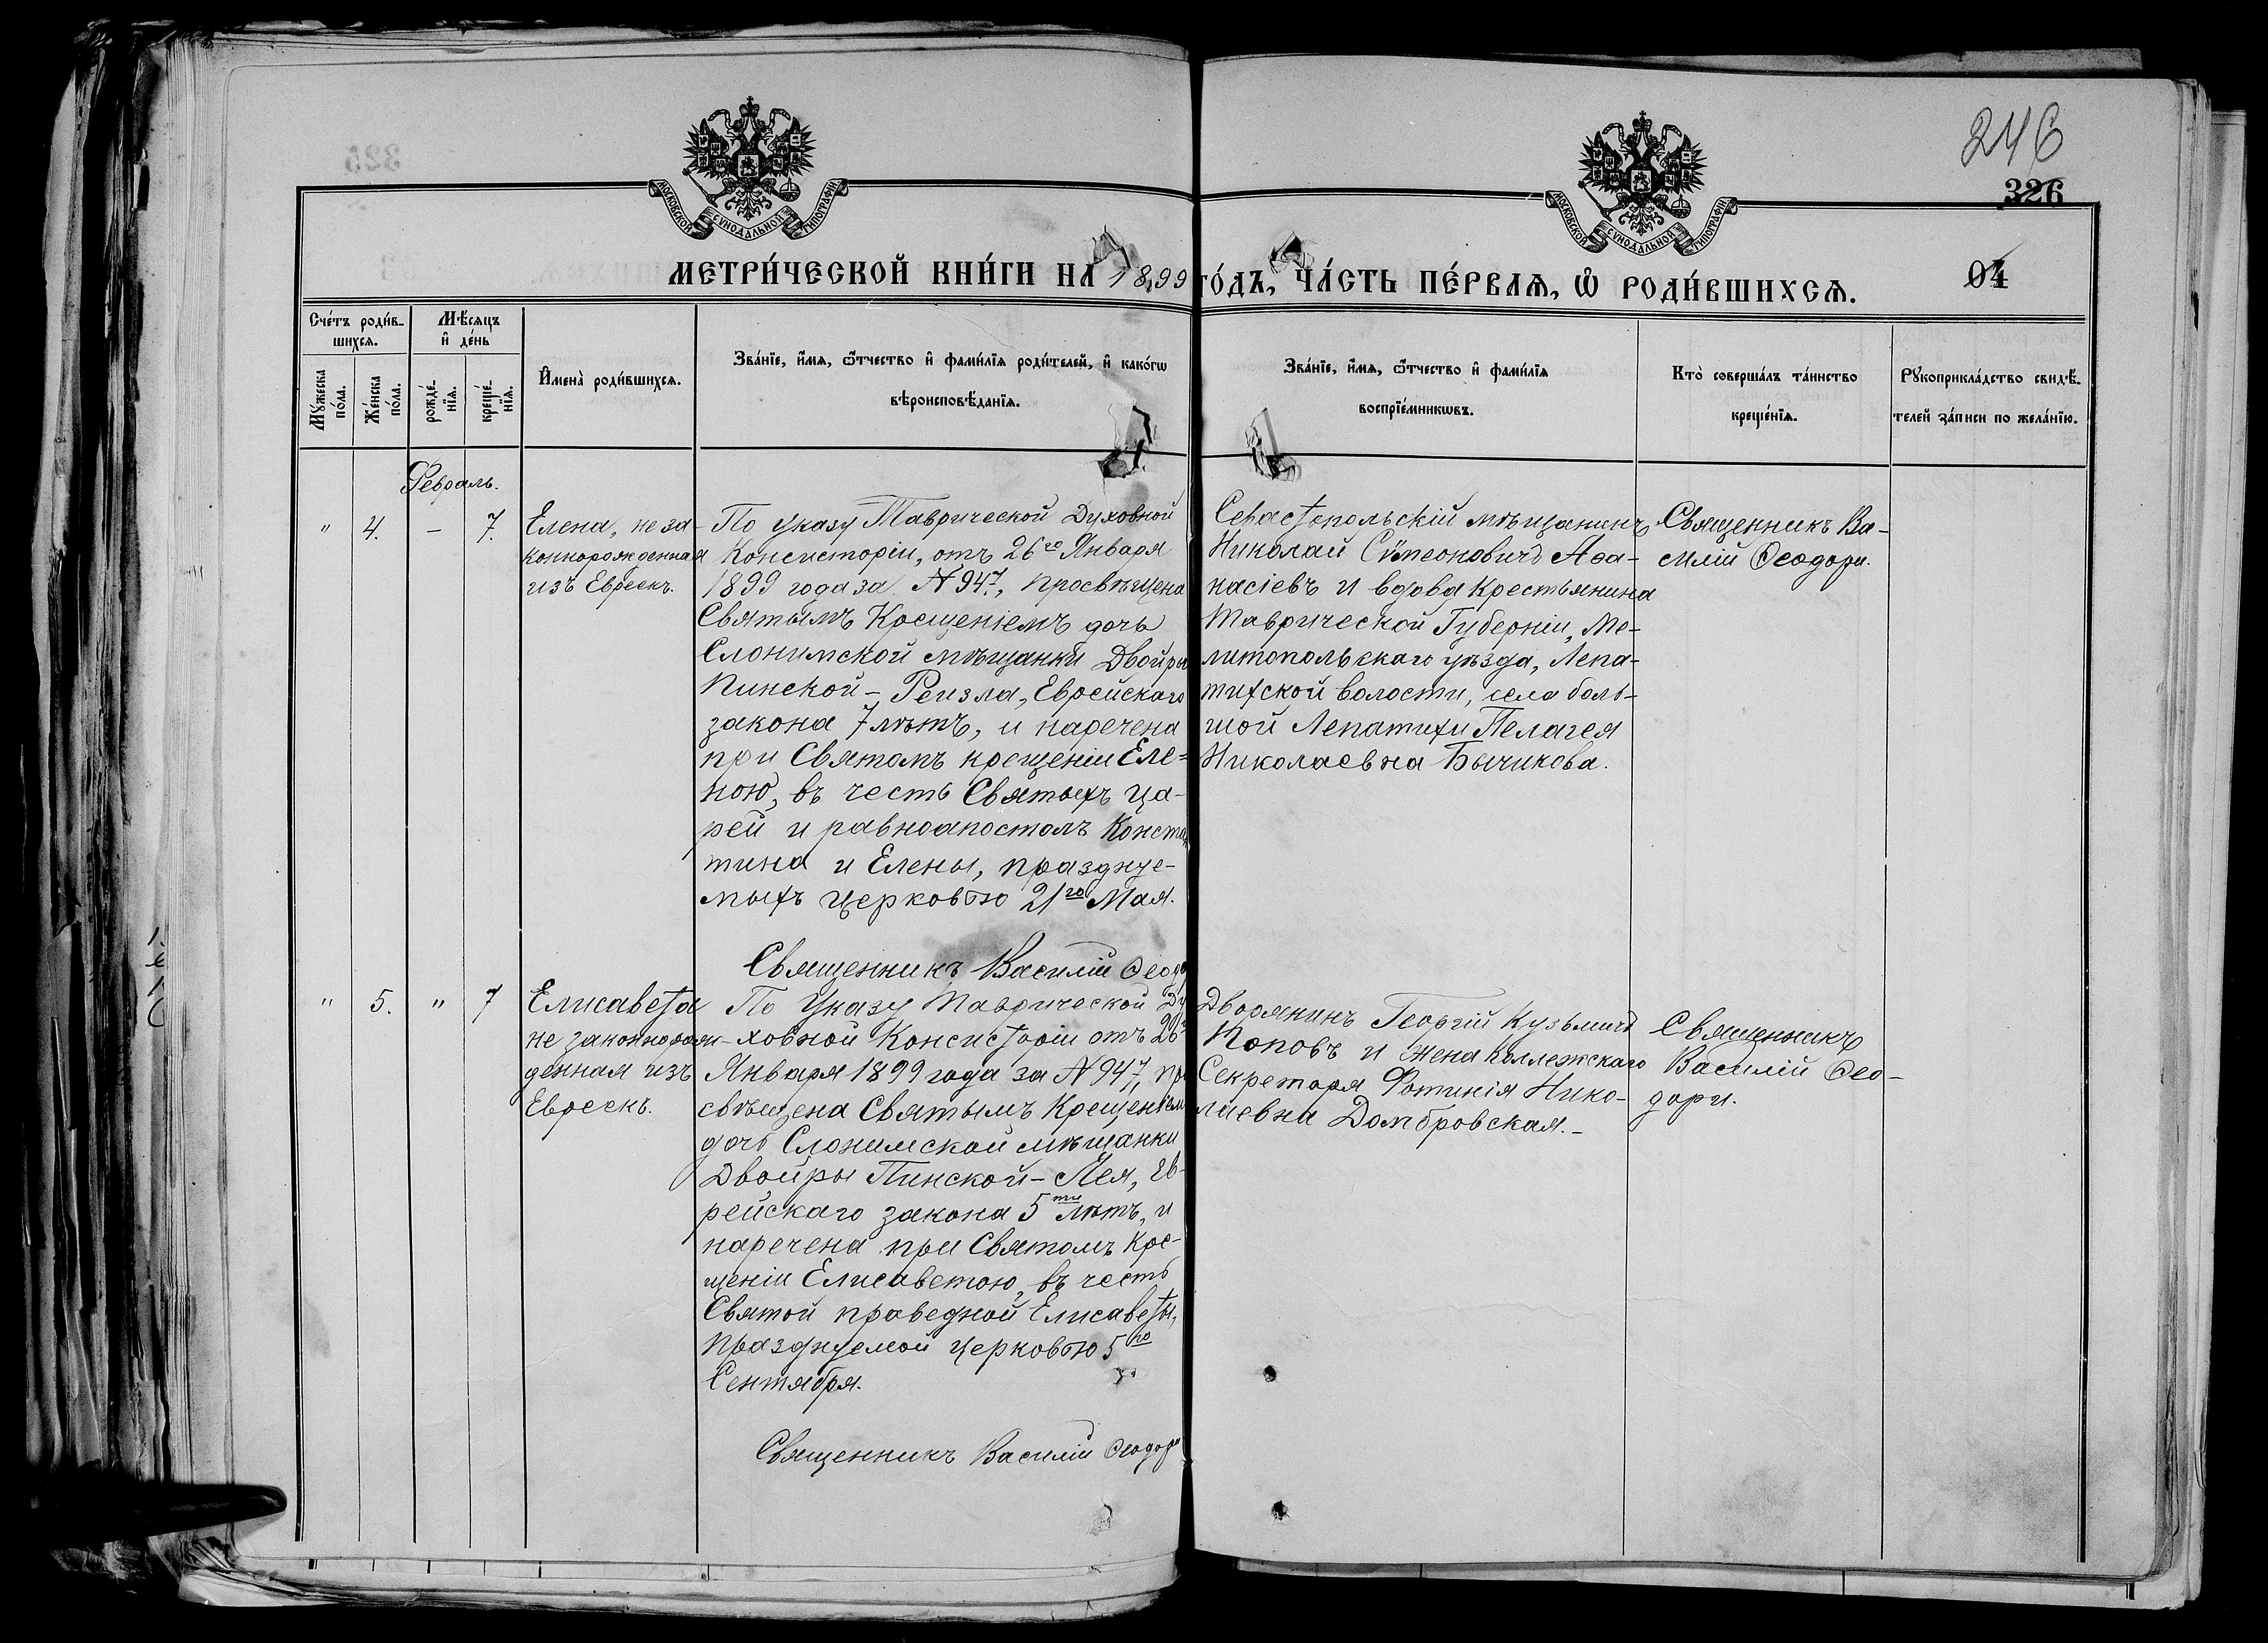 246
326
МОСКОВСКОЙ СѴНОДАЛЬНОЙ ТИПОГРАФІИ
МОСКОВСКОЙ СѴНОДАЛЬНОЙ ТИПОГРАФІИ
МЕТРИ́ЧЕСКОЙ КНИ́ГИ НА 1899 ГО́ДЪ, ЧА́СТЬ ПЕ́РВАѦ, Ѡ҆ РОДИ́ВШИХСѦ.
04
Сче́тъ роди́в-
шихсѧ.
Мꙋ́жеска по́ла.
Же́нска по́ла.
Мѣ́сѧцъ
и҆ де́нь
рожде́-
нїѧ.
креще́-
нїѧ.
И҆мена̀ роди́вшихсѧ.
Зва́нїе, и҆́мѧ, ѻ҆́тчество и҆ фами́лїѧ роди́телей, и҆ како́гѡ
вѣроисповѣ́данїѧ.
Зва́нїе, и҆́мѧ, ѻ҆́тчество и҆ фами́лїѧ
воспрїе́мникѡвъ.
Кто̀ соверша́лъ та́инство
креще́нїѧ.
Рꙋкоприкла́дство свидѣ́-
телей за́писи по жела́нїю.
Февраль.
" 4. – 7.
Елена, неза-
коннорожденная
изъ Евреекъ.
По указу Таврической Духовной
Консисторіи, отъ 26го Января
1899 года за № 947, просвѣщена
Святымъ Крещеніемъ дочь
Слонимской мѣщанки Двойры
Пинской – Реизла, Еврейскаго
закона 7 лѣтъ, и наречена
при Святомъ крещеніи Еле-
ною, въ честь Святыхъ Ца-
рей и равноапостолъ Констан
тина и Елены, празднуе-
мыхъ Церковью 21го Мая.
Священникъ Василій Ѳеодо
Севастопольскій мѣщанинъ
Николай Сѵмеоновичъ Аѳа-
насіевъ и вдова крестьянина
Таврической Губерніи, Ме-
литопольскаго уѣзда, Лепа-
тихской волости, села боль-
шой Лепатихи Пелагея
Николаевна Бычикова.
Священникъ Ва-
силій Ѳеодори.
" 5. " 7
Елисавета
незаконнорож-
денная изъ
Евреекъ.
По Указу Таврической Ду
ховной Консисторіи отъ 26г
Января 1899 года за № 947, про
свѣщена Святымъ Крещеніем
дочь Слонимской мѣщанки
Двойры Пинской – Лея, Ев-
рейскаго закона 5ти лѣтъ, и
наречена при Святомъ Кре-
щеніи Елисаветою, въ честь
Святой праведной Елисаветы,
празднуемой Церковью 5го
Сентября.
Священникъ Василій Ѳеодори
Дворянинъ Георгій Кузьмичъ
Поповъ и жена Коллежскаго
Секретаря Фотинія Нико-
лаевна Домбровская.–
Священникъ
Василій Ѳео-
дори.